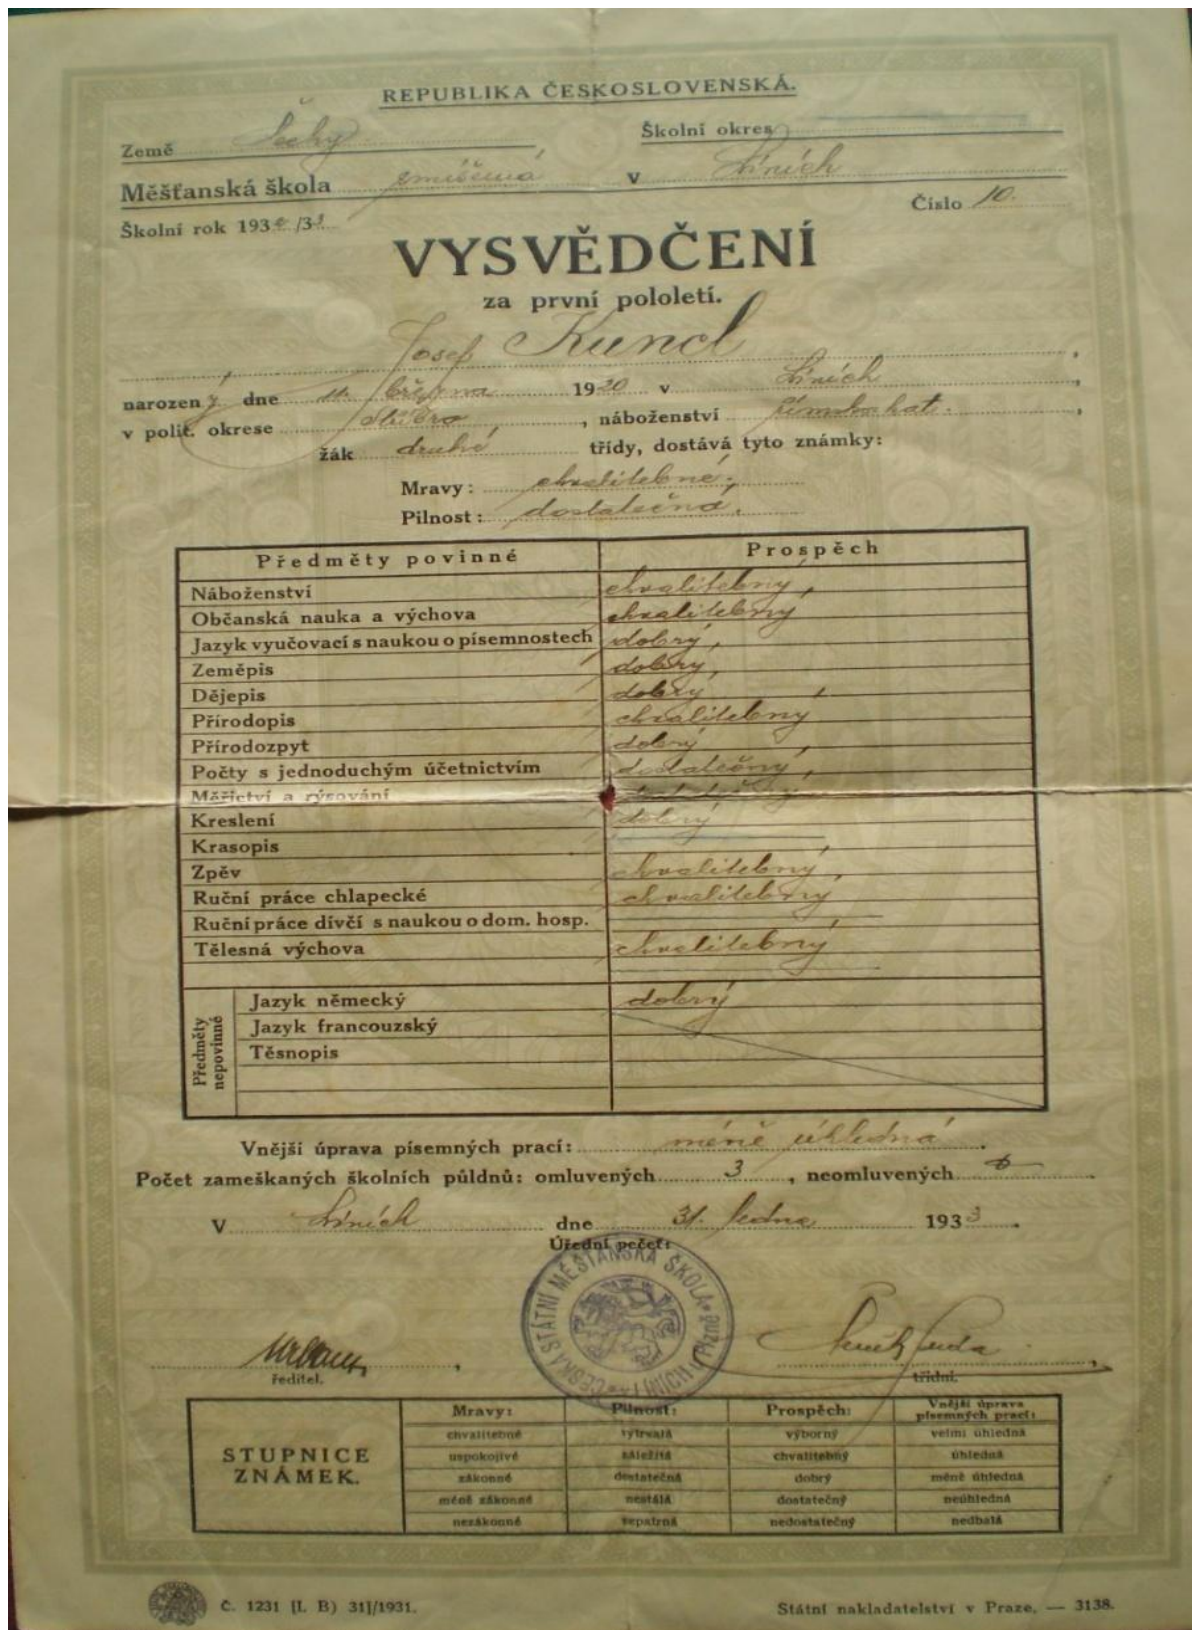 REPUBLIKA ČESKOSLOVENSKÁ.
Země Čechy Školní okres
Měšťanská škola smíšená v Líních
Číslo 10.
Školní rok 1932/33
VYSVĚDČENÍ
za první pololetí.
Josef Kuncl,
narozený dne 11. března 1920 v Líních,
v polit. okrese Stříbro, náboženství římsko kat.,
žák druhé třídy, dostává tyto známky:
Mravy: chvalitebné,
Pilnost: dostatečná.
Předměty povinné Prospěch
Náboženství chvalitebný,
Občanská nauka a výchova chvalitebný
Jazyk vyučovací s naukou o písemnostech dobrý,
Zeměpis dobrý,
Dějepis dobrý,
Přírodopis chvalitebný
Přírodozpyt dobrý,
Počty s jednoduchým účetnictvím dostatečný,
Měřictví a rýsování dostatečný
Kreslení dobrý
Krasopis
Zpěv chvalitebný,
Ruční práce chlapecké chvalitebný
Ruční práce dívčí s naukou o dom. hosp.
Tělesná výchova chvalitebný
Předměty nepovinné
Jazyk německý dobrý
Jazyk francouzský
Těsnopis
Vnější úprava písemných prací: méně úhledná.
Počet zameškaných školních půldnů: omluvených 3, neomluvených
V Líních dne 31. ledna 1933.
Úřední pečeť:
ČESKÁ STÁTNÍ MĚŠŤANSKÁ ŠKOLA V LÍNÍCH U PLZNĚ
ředitel. třídní.
STUPNICE ZNÁMEK.
Mravy: Pilnost: Prospěch: Vnější úprava písemných prací:
chvalitebné vytrvalá výborný velmi úhledná
uspokojivé náležitá chvalitebný úhledná
zákonné dostatečná dobrý méně úhledná
méně zákonné nestálá dostatečný neúhledná
nezákonné nepatrná nedostatečný nedbalá
Č. 1231 [I. B) 31]/1931. Státní nakladatelství v Praze. — 3138.